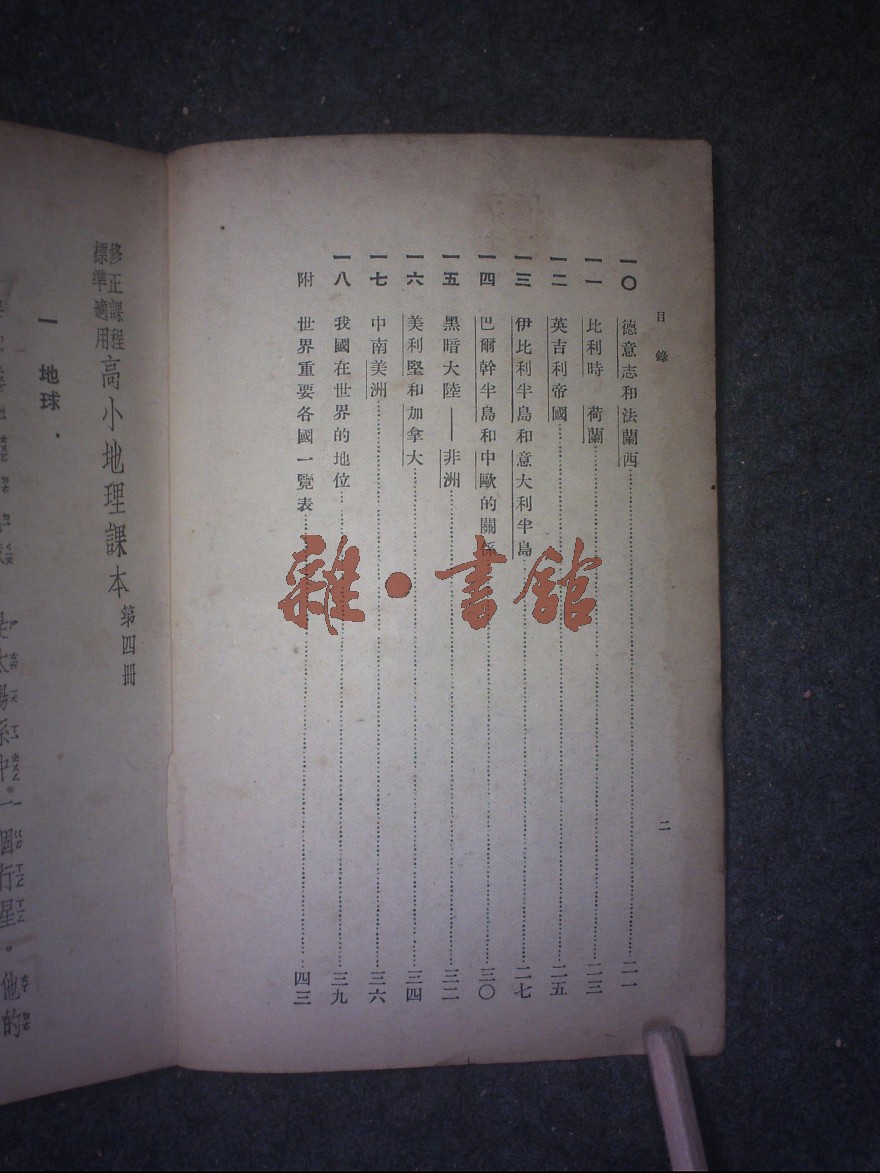 目錄
一〇 德意志和法蘭西 二一
一一 比利時 荷蘭 二三
一二 英吉利帝國 二五
一三 伊比利半島和意大利半島 二七
一四 巴爾幹半島和中歐的關係 三〇
一五 黑暗大陸——非洲 三二
一六 美利堅和加拿大 三四
一七 中南美洲 三六
一八 我國在世界的地位 三九
附 世界重要各國一覽表 四三
二
雜·書館
修正課程標準適用 高小地理課本 第四冊
一 地球
是太陽系中一個行星。他的